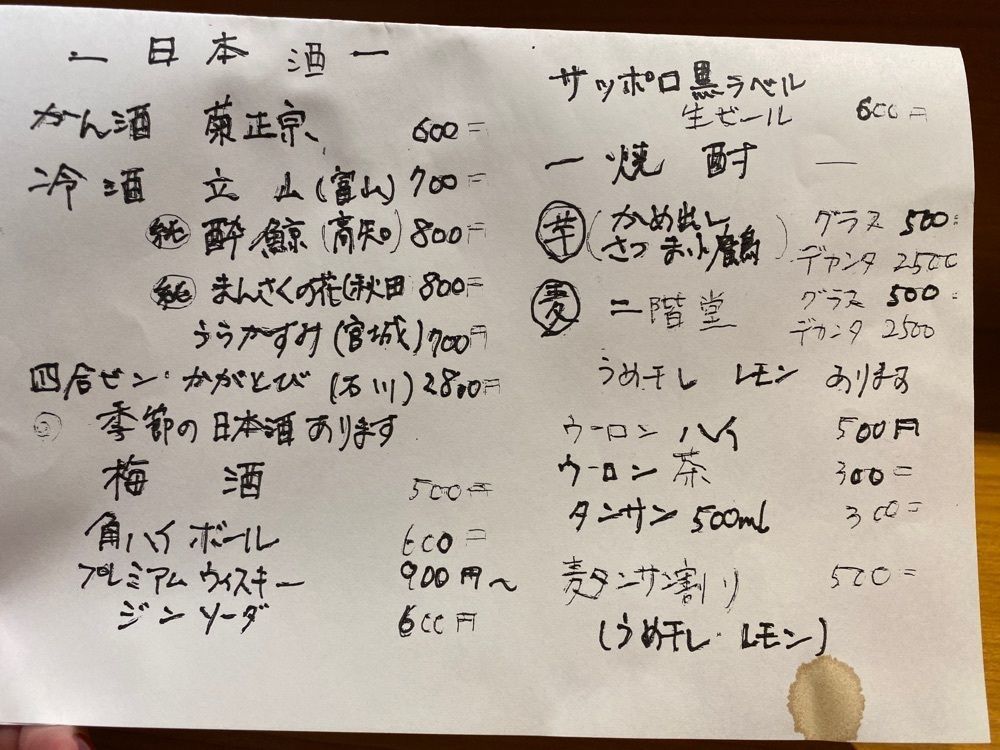 ー日本酒ー
かん酒 菊正宗、 600=
冷酒 立山(富山) 700=
純 酔鯨(高知) 800円
純 まんさくの花(秋田 800円
うらかすみ(宮城) 700円
四合ビン・かがとび(石川) 2800円
◎ 季節の日本酒あります
梅酒 500円
角ハイボール 600=
プレミアムウィスキー 900円〜
ジンソーダ 600円
サッポロ黒ラベル
生ビール 600円
一焼酎一
芋(かめ出し グラス 500=
さつまい) デカンタ 2500
麦 二階堂 グラス 500=
デカンタ 2500
うめ干し レモン あります
ウーロンハイ 500円
ウーロン茶 300=
タンサン 500ml 300=
麦タンサン割り 500=
(うめ干し・レモン)